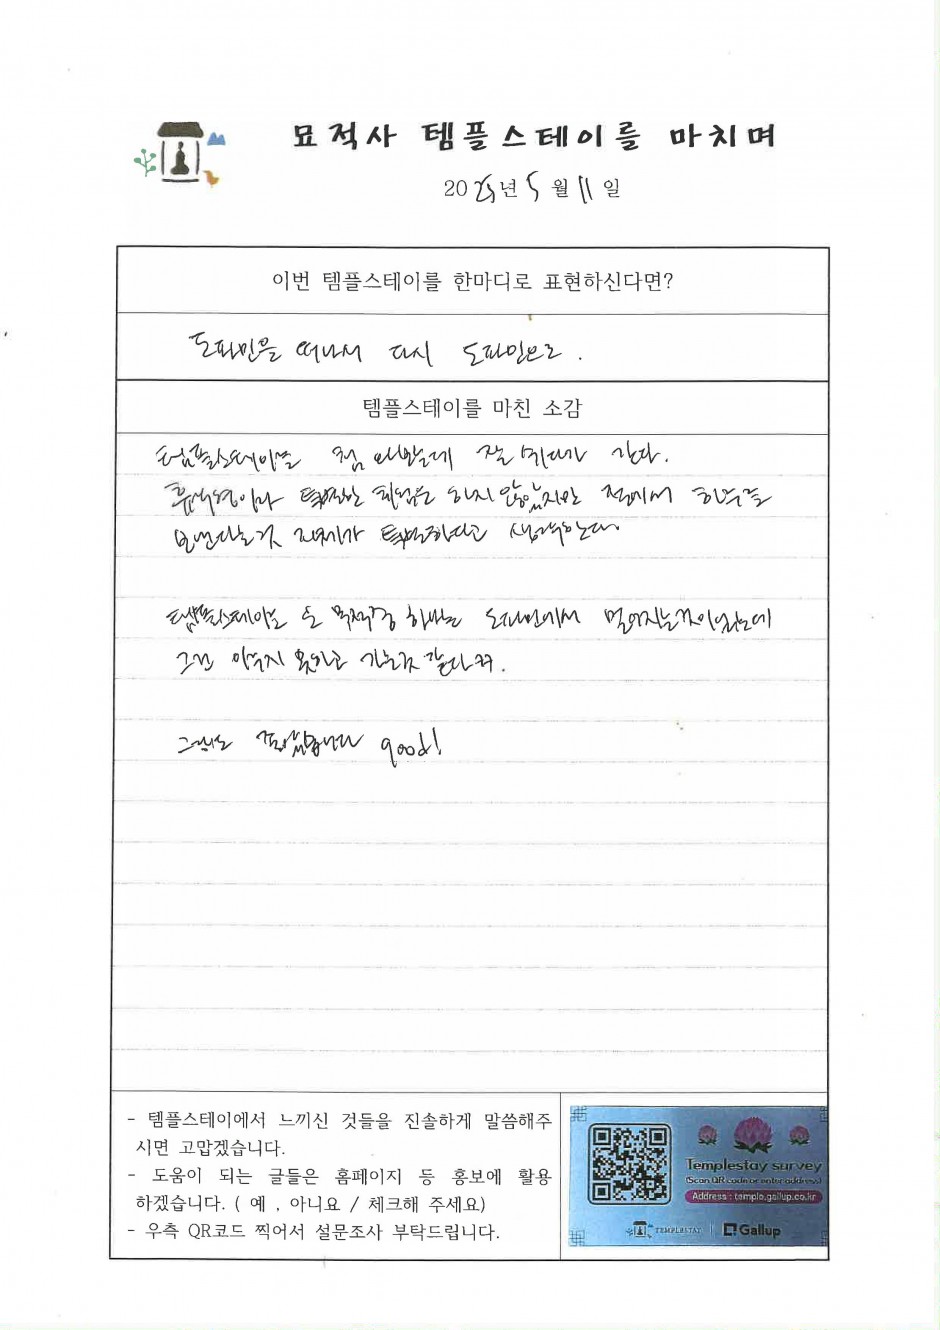 묘적사 템플스테이를 마치며
2025년 5월 11일
이번 템플스테이를 한마디로 표현하신다면?
도파민을 떠나서 다시 도파민으로.
템플스테이를 마친 소감
템플스테이를 첨 와봤는데 잘 쉬다가 간다.
휴식형이라 특별한 체험은 하지 않았지만 절에서 하루를
보낸다는것 자체가 특별하다고 생각한다.
템플스테이를 온 목적중 하나는 도파민에서 멀어지는것이었는데
그건 이루지 못하고 가는것 같다ㅋㅋ.
그래도 좋았습니다 good!
- 템플스테이에서 느끼신 것들을 진솔하게 말씀해주
시면 고맙겠습니다.
- 도움이 되는 글들은 홈페이지 등 홍보에 활용
하겠습니다. ( 예 , 아니요 / 체크해 주세요)
- 우측 QR코드 찍어서 설문조사 부탁드립니다.
Templestay survey
(Scan QR code or enter address)
Address : temple.gallup.co.kr
TEMPLESTAY | Gallup